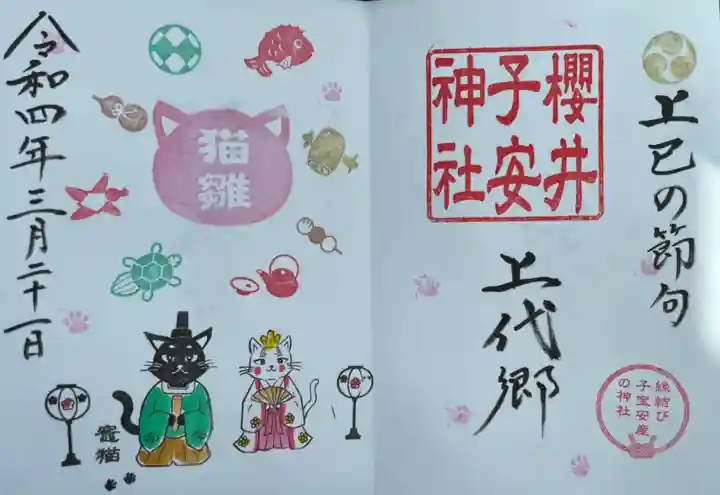 上巳の節句
櫻井
子安
神社
上代郷
縁結び
子宝安産
の神社
猫雛
竈猫
令和四年三月二十一日